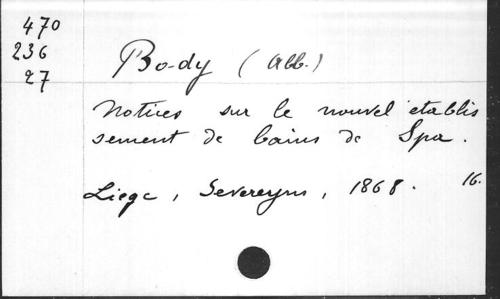 470
236
27
Body (Alb.)
Notices sur le nouvel etablis
sement de bains de Spa.
Liege, Severeyns, 1868. 16.